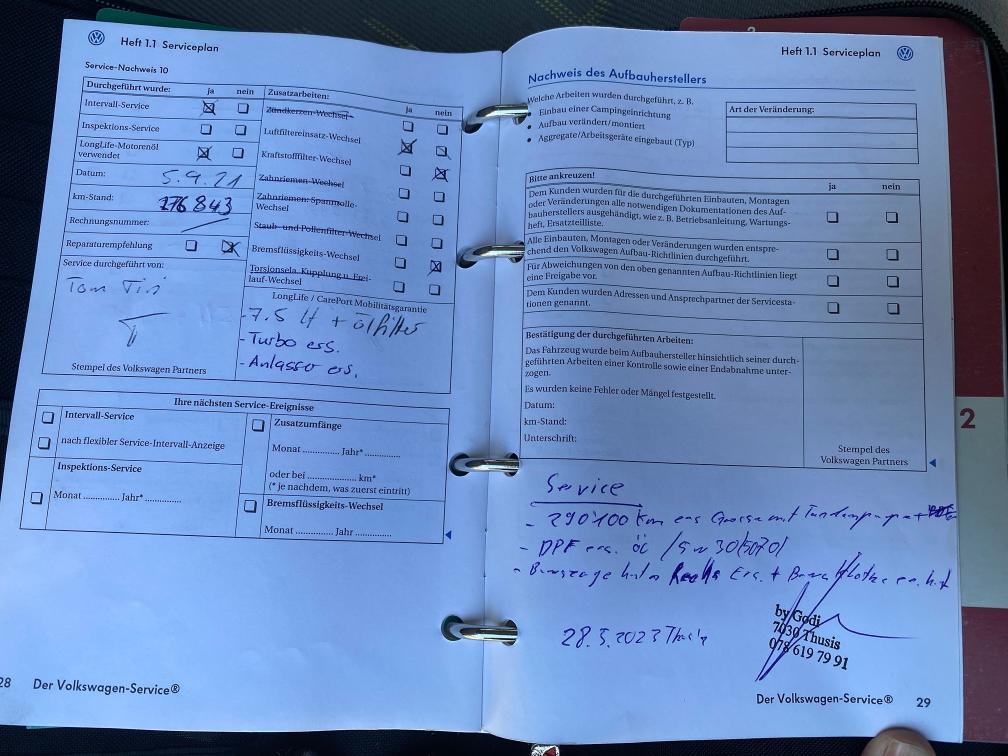 Heft 1.1 Serviceplan
Service-Nachweis 10
Durchgeführt wurde: ja nein
Intervall-Service
Inspektions-Service
LongLife-Motorenöl
verwendet
Datum: 5.9.21
km-Stand: 276843
Rechnungsnummer:
Reparaturempfehlung
Service durchgeführt von:
Tom
Stempel des Volkswagen Partners
Zusatzarbeiten: ja nein
Zündkerzen-Wechsel
Luftfiltereinsatz-Wechsel
Kraftstofffilter-Wechsel
Zahnriemen-Wechsel
Zahnriemen: Spannrolle-
Wechsel
Staub- und Pollenfilter-Wechsel
Bremsflüssigkeits-Wechsel
Torsionsela. Kupplung u. Frei-
lauf-Wechsel
LongLife / CarePort Mobilitätsgarantie
- 7.5 lt + Ölfilter
- Turbo ers.
- Anlasser ers.
Ihre nächsten Service-Ereignisse
Intervall-Service
nach flexibler Service-Intervall-Anzeige
Inspektions-Service
Monat ............. Jahr* ...............
Zusatzumfänge
Monat .............. Jahr* ..............
oder bei .................... km*
(* je nachdem, was zuerst eintritt)
Bremsflüssigkeits-Wechsel
Monat .............. Jahr ..............
28 Der Volkswagen-Service®
Heft 1.1 Serviceplan
Nachweis des Aufbauherstellers
Welche Arbeiten wurden durchgeführt, z. B.
• Einbau einer Campingeinrichtung
• Aufbau verändert/montiert
• Aggregate/Arbeitsgeräte eingebaut (Typ)
Art der Veränderung:
Bitte ankreuzen! ja nein
Dem Kunden wurden für die durchgeführten Einbauten, Montagen
oder Veränderungen alle notwendigen Dokumentationen des Auf-
bauherstellers ausgehändigt, wie z. B. Betriebsanleitung, Wartungs-
heft, Ersatzteilliste.
Alle Einbauten, Montagen oder Veränderungen wurden entspre-
chend den Volkswagen Aufbau-Richtlinien durchgeführt.
Für Abweichungen von den oben genannten Aufbau-Richtlinien liegt
eine Freigabe vor.
Dem Kunden wurden Adressen und Ansprechpartner der Servicesta-
tionen genannt.
Bestätigung der durchgeführten Arbeiten:
Das Fahrzeug wurde beim Aufbauhersteller hinsichtlich seiner durch-
geführten Arbeiten einer Kontrolle sowie einer Endabnahme unter-
zogen.
Es wurden keine Fehler oder Mängel festgestellt.
Datum:
km-Stand:
Unterschrift:
Stempel des
Volkswagen Partners
Service
- 290'100 Km
- DPF ers. öl
28.3.2023 Thusis
by Godi
7430 Thusis
078 619 79 91
Der Volkswagen-Service® 29
2